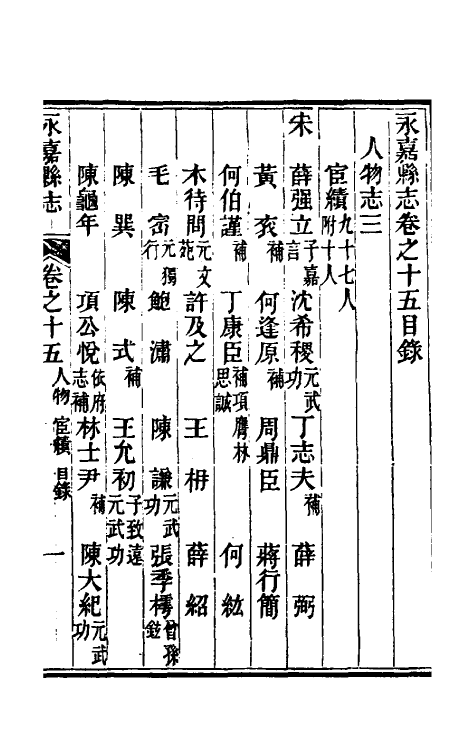 永嘉縣志卷之十五目錄
人物志三
宦績九十七人附十人
宋 薛强立子嘉言 沈希稷元武功 丁志夫補 薛弼
黃袞補 何逢原補 周鼎臣 蔣行簡
何伯謹補 丁康臣補項膺林思誠 何紘
木待問元文範 許及之 王柟 薛紹
毛密元獨行 鮑潚 陳謙元武功 張季樗曾孫鉉
陳巽 陳式補 王允初子致遠元武功
陳龜年 項公悅依府志補 林士尹補 陳大紀元武功
永嘉縣志 卷之十五 人物 宦績 目錄 一